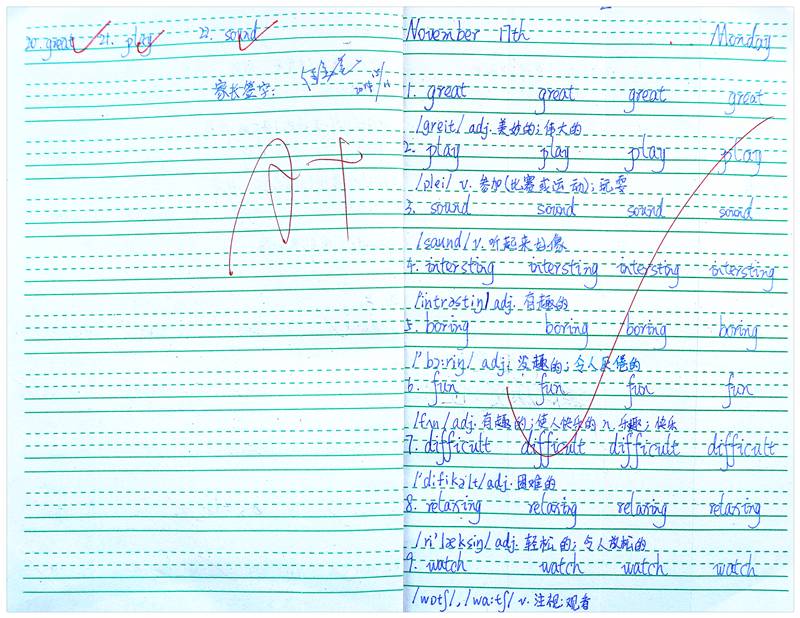 20. great 21. play 22. sound
家长签字:
A+
November 17th Monday
1. great great great great
/greit/ adj. 美妙的;伟大的
2. play play play play
/plei/ v. 参加(比赛或运动);玩耍
3. sound sound sound sound
/saund/ v. 听起来好像
4. intersting intersting intersting intersting
/intrəstiŋ/ adj. 有趣的
5. boring boring boring boring
/'bɔ:riŋ/ adj. 没趣的;令人厌倦的
6. fun fun fun fun
/fʌn/ adj. 有趣的;使人快乐的 n. 乐趣;快乐
7. difficult difficult difficult difficult
/'difikəlt/ adj. 困难的
8. relaxing relaxing relaxing relaxing
/ri'læksiŋ/ adj. 轻松的;令人放松的
9. watch watch watch watch
/wɒtʃ/, /wa:tʃ/ v. 注视;观看